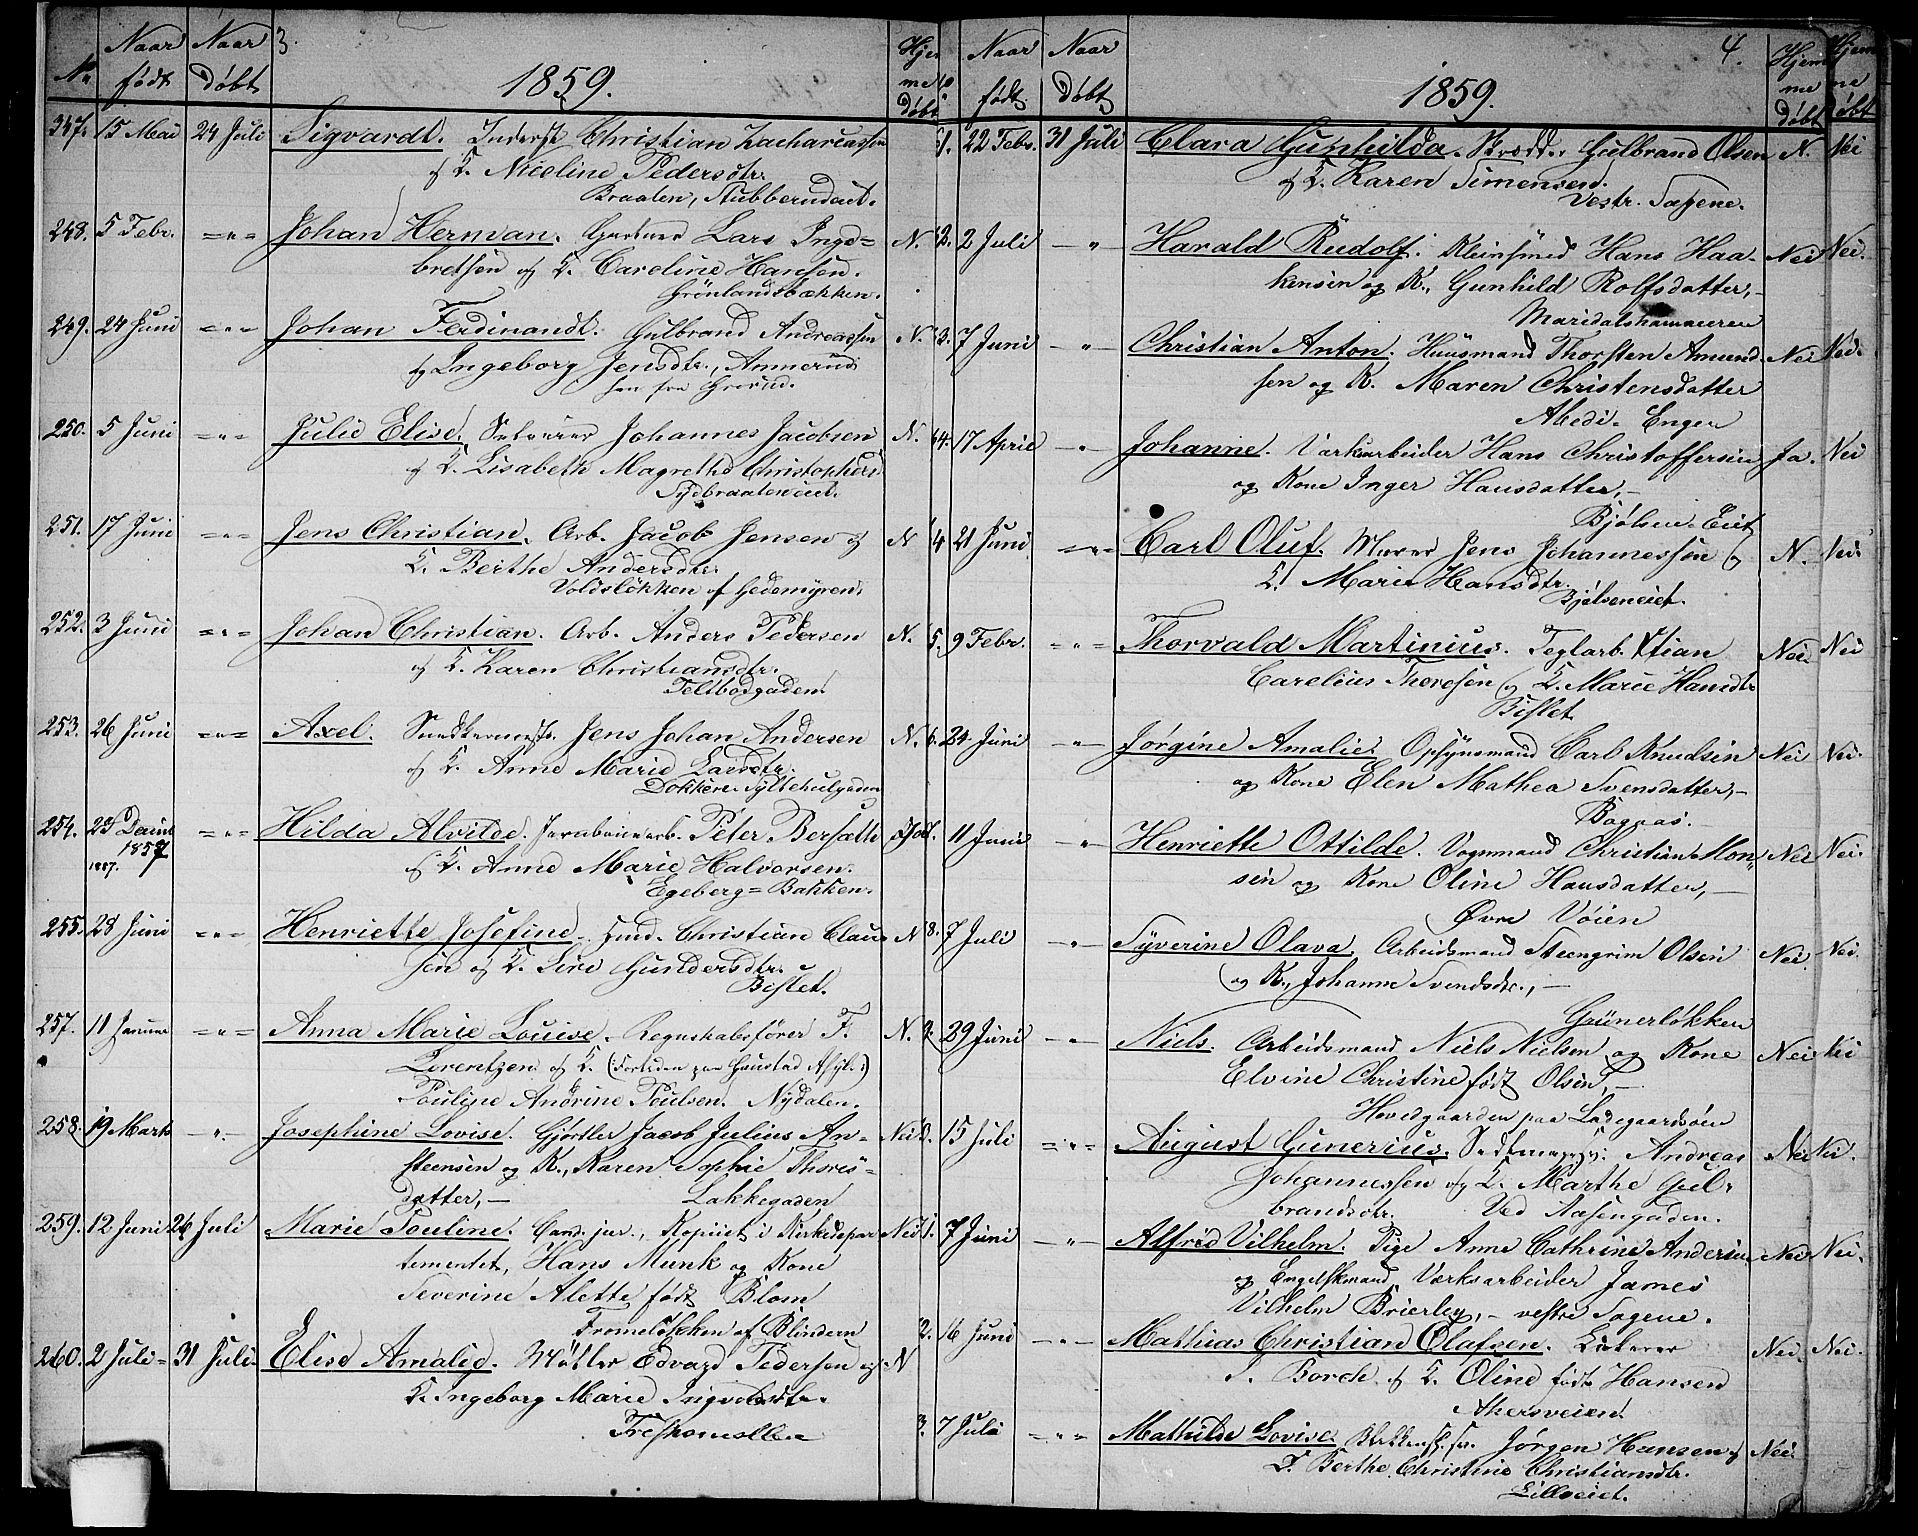 3.
No Naar født Naar døbt 1859. Hjemme døbt
347. 15 Mai 24 Juli Sigvardt. Inderst Christian Zachariassen
of K. Nicoline Pedersdtr.
Braaten, Stubberudeiet.
248. 5 Febr. =〃= Johan Herman. Gartner Lars Inge= N.
bretsen og K. Caroline Hansen.
Grønlandsbækken.
249. 24 Juni =〃= Johan Ferdinandt. Gulbrand Andreassen N.
og Ingeborg Jensdtr., Ammerud
250. 5 Juni =〃= Julie Elise. Johannes Jacobsen N.
of K. Lisabeth Magrethe Christophers
251. 17 Juni =〃= Jens Christian. Arb. Jacob Jensen og N
K. Berthe Andersdtr.
Voldsløkken of Gedemyren.
252. 3 Juni =〃= Johan Christian. Arb. Anders Pedersen N.
of K. Karen Christiansdtr.
Teltbodgaden.
253. 26 Juni =〃= Axel. Snedkermestr. Jens Johan Andersen N.
of K. Anne Marie Larsdtr.
254. 1857 =〃= Hilda Alvilde. Peter Berseth
of K. Anne Marie Halvorsen.
Egeberg=Bakken.
255. 28 Juni =〃= Henriette Josefine. Christian Clau= N
sen og K. Siri Gundersdtr.
Bislet.
257. 11 Januar =〃= Anna Marie Louise. Regnskabsfører F. N.
Lorentzen og K. (: Fortiden paa Gaustad Asyl :)
Pouline Andrine Poulsen. Nydalen.
258. 19 Marts -〃- Josephine Lovise. Gjørtler Jacob Julius An= Nei
steensen og K., Karen Sophie Thores=
datter,- Lakkegaden
259. 12 Juni 26 Juli Marie Pouline. Cand. jur., Kopiist i Kirkedepar Nei
tementet, Hans Munk og Kone
Severine Alette født Blom
Fromeløkken of Blindern
260. 2 Juli= 31 Juli. Elise Amalie. Møller Edvard Pedersen og N
K. Ingeborg Marie
4.
Naar født Naar døbt 1859. Hjemme døbt Hjemme døbt
1. 22 Febr. 31 Juli Clara Gunhilda. Skrædder Gulbrand Olsen N. Nei
of K. Karen Simensen.
Vestr. Sagene.
2. 2 Juli -〃- Harald Rudolf. Kleinsmed Hans Haa= Nei Nei.
kensen og K., Gunhild Rolfsdatter,-
Maridalshammeren
3. 7 Juni -〃- Christian Anton. Huusmand Thorsten Amund Nei Nei.
sen og K. Maren Christensdatter
Engen
4. 17 April -〃- Johanne. Værksarbeider Hans Christoffersen Ja. Nei
og Kone Inger Hansdatter,-
Bjølsen-Eiet
4 21 Juni =〃= Carl Oluf. Murer Jens Johannessen og N. Nei
K. Marie Hansdtr.
Bjølseneiet.
5. 9 Febr. =〃= Thorvald Martinius. Teglarb. Xtian Nei Nei
Carelius Thoresen og K. Marie Hansdtr
Bislet
6. 24 Juni -〃- Jørgine Amalie. Opsynsmand Carl Knudsen Nei Nei.
og Kone Elen Mathea Svensdatter,-
11 Juni -〃- Henriette Ottilde. Vognmand Christian Mon Nei Nei.
sen og Kone Oline Hansdatter,-
Øvre Vøien
8. 7 Juli -〃- Syverine Olava. Arbeidsmand Steengrim Olsen Nei. Nei.
og K., Johanne Svendsdtr.,-
Grünerløkken
29 Juni -〃- Niels. Arbeidsmand Niels Nielsen og Kone Nei Nei
Elvine Christine født Olsen,-
Hovedgaarden paa Ladegaardsøen
15 Juli =〃= August Gunerius. Andreas Nei Nei.
Johannessen og K. Marthe Gul=
brandsdtr. Ved Aasengaden.
1. 7 Juni -〃- Alfred Vilhelm. Pige Anne Cathrine Andersen Nei Nei.
og Engelskmand, Værksarbeider James
Vilhelm Brierley,- vestre Sagene.
2. 16 Juni -〃- Mathias Christian Olafsen. Nei. Nei.
Borch of K. Oline født Hansen
Akersveien
3. 7 Juli =〃= Mathilde Lovise. Jørgen Hansen og Nei.
K. Berthe Christine Christiansdtr.
Lilleeiet.